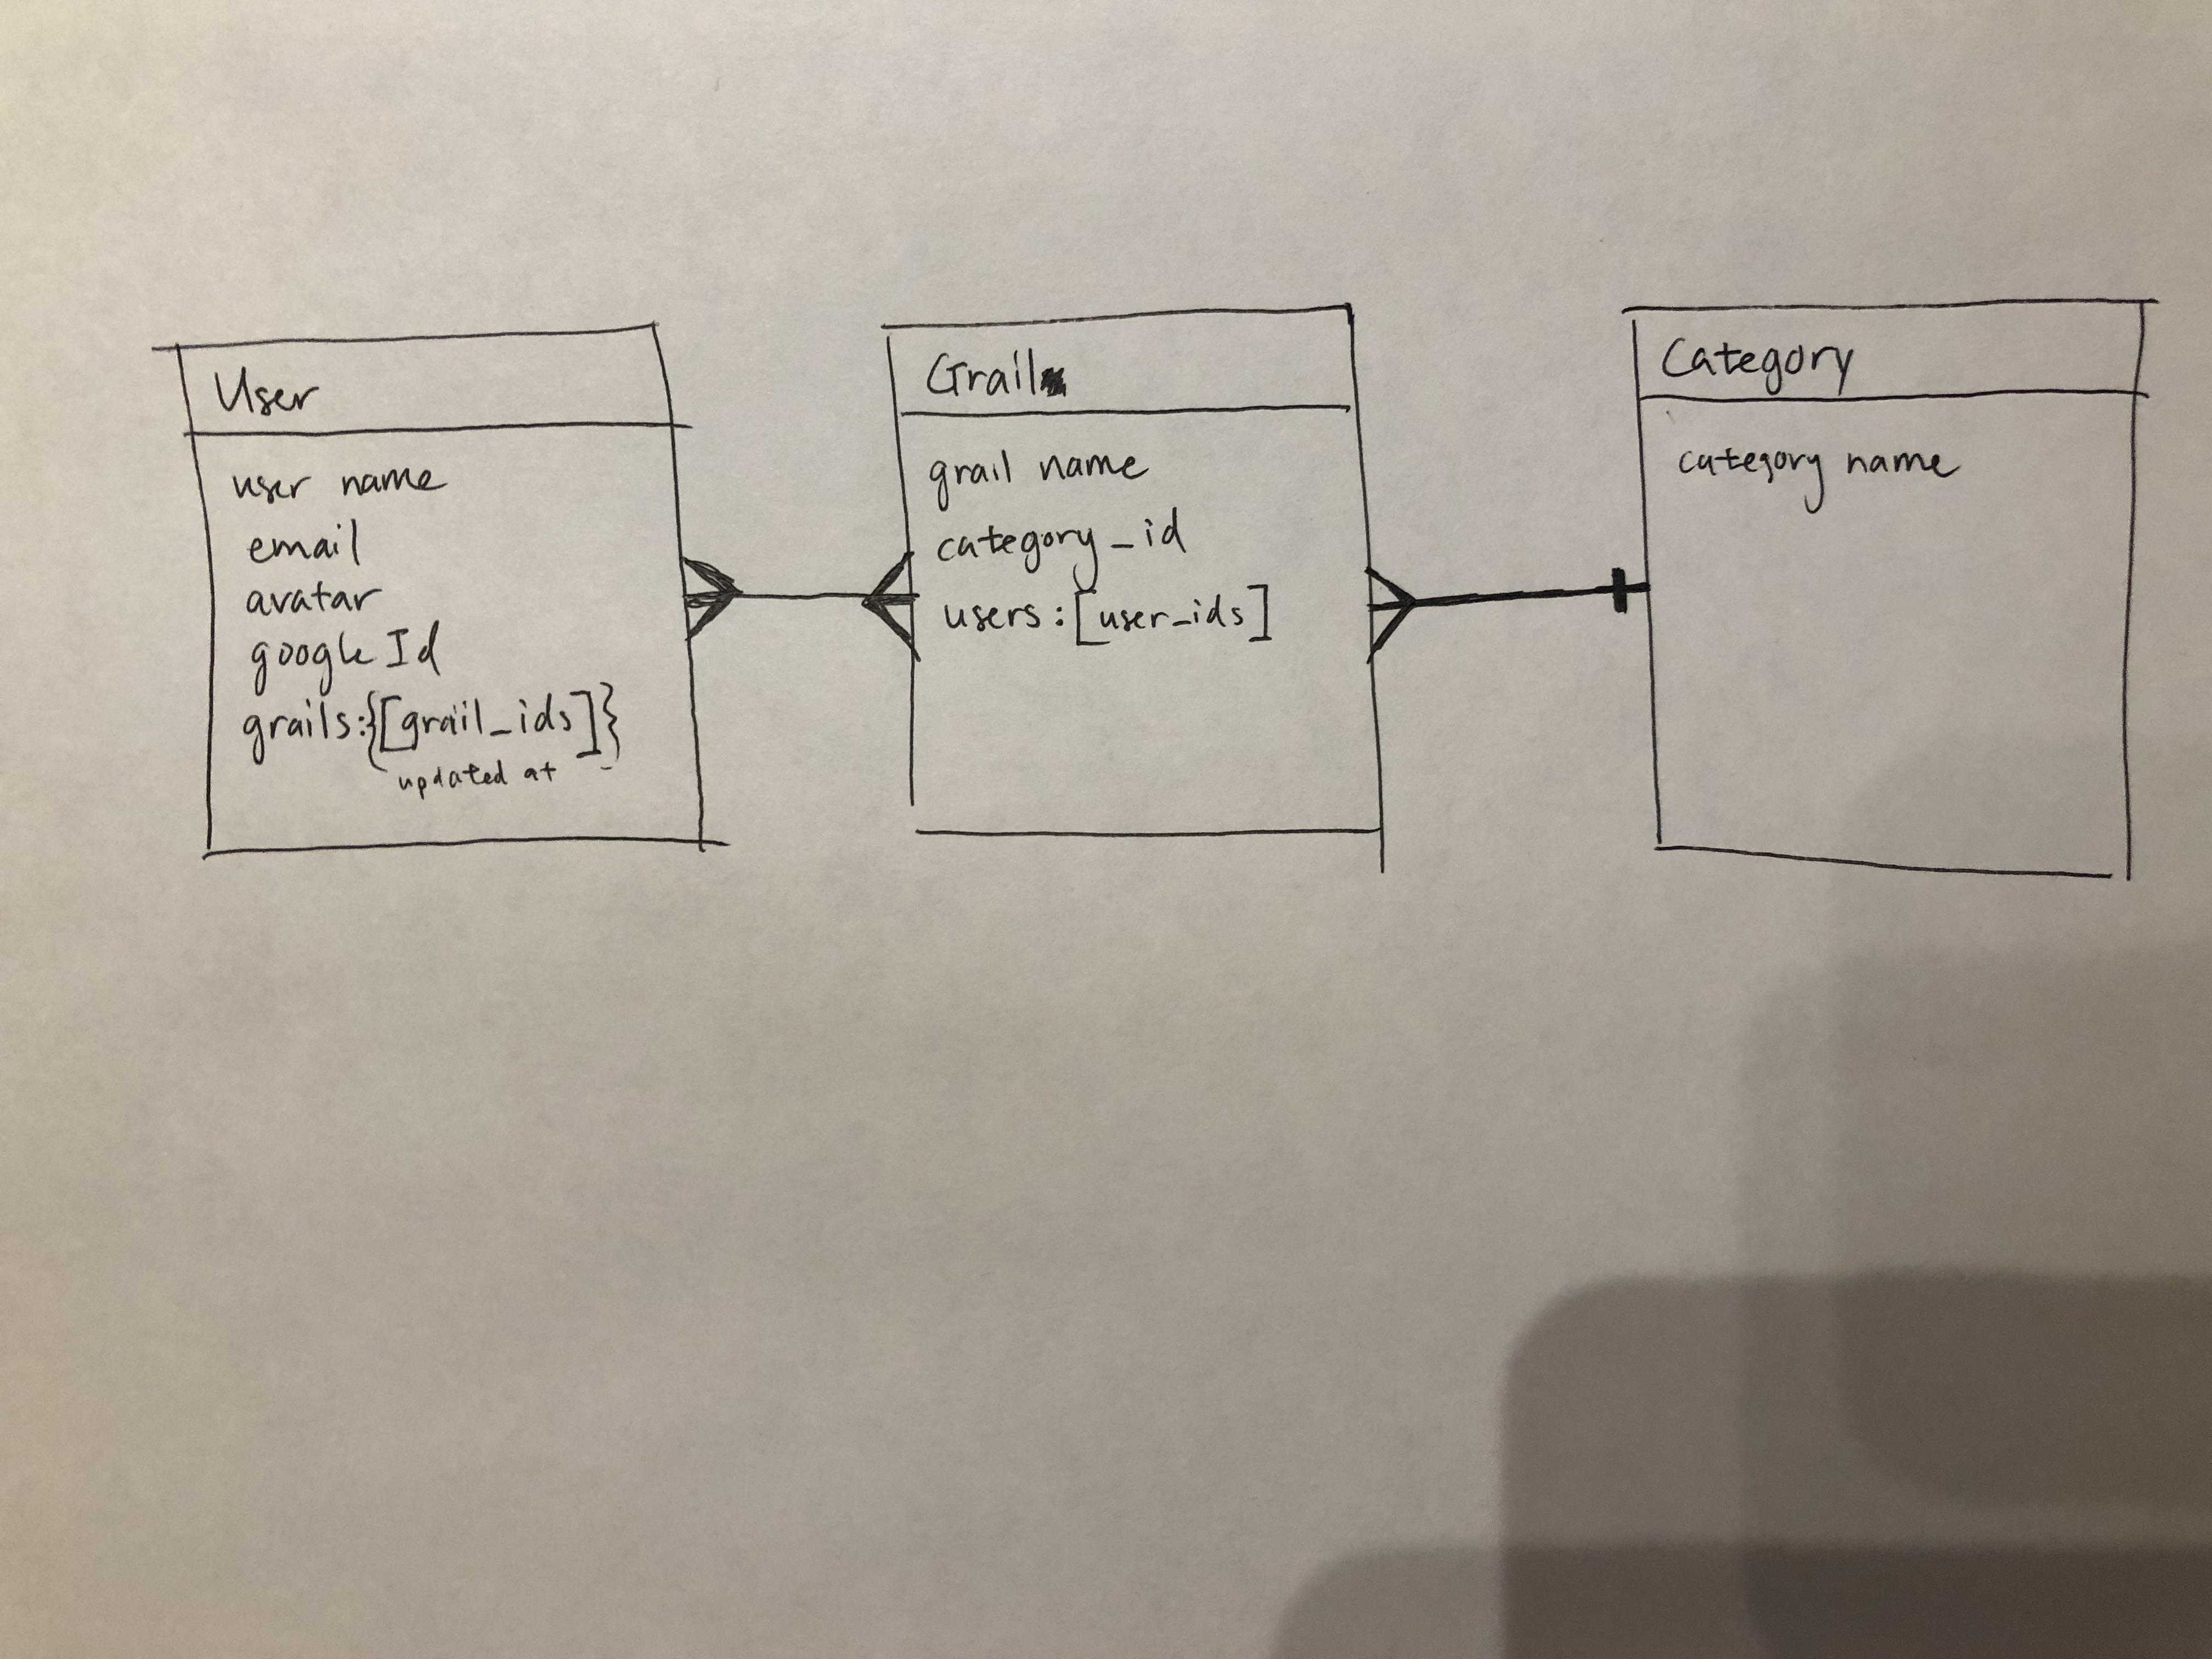 User
user name
email
avatar
google Id
grails:{[grail_ids]}
updated at
Grail
grail name
category_id
users:[user_ids]
Category
category name